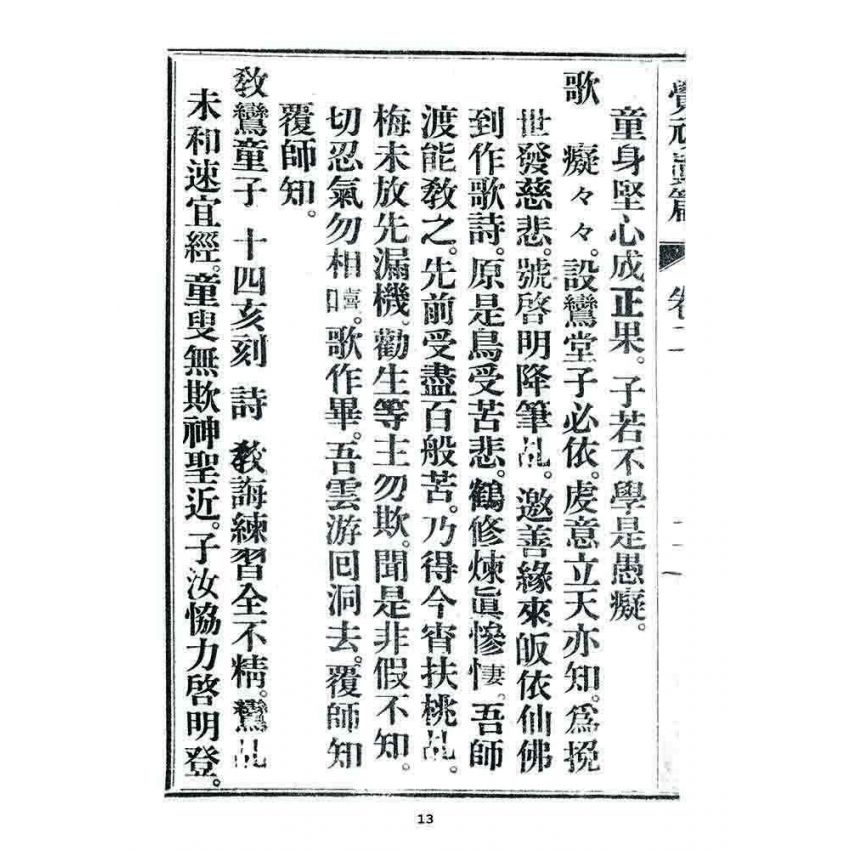 卷二
童身堅心成正果。子若不學是愚癡。
歌　癡々々。設鸞堂子必依。虔意立天亦知。為挽
世發慈悲。號啓明降筆乩。邀善緣來皈依仙佛
到作歌詩。原是鳥受苦悲。鶴修煉眞慘悽。吾師
渡能敎之。先前受盡百般苦。乃得今宵扶桃乩。
梅未放先漏機。勸生等主勿欺。聞是非假不知。
切忍氣勿相嘻。歌作畢。吾雲游回洞去。覆師知
覆師知。
敎鸞童子　十四亥刻　詩　敎誨練習全不精。鸞乩
未和速宜經。童叟無欺神聖近。子汝恊力啓明登。
13